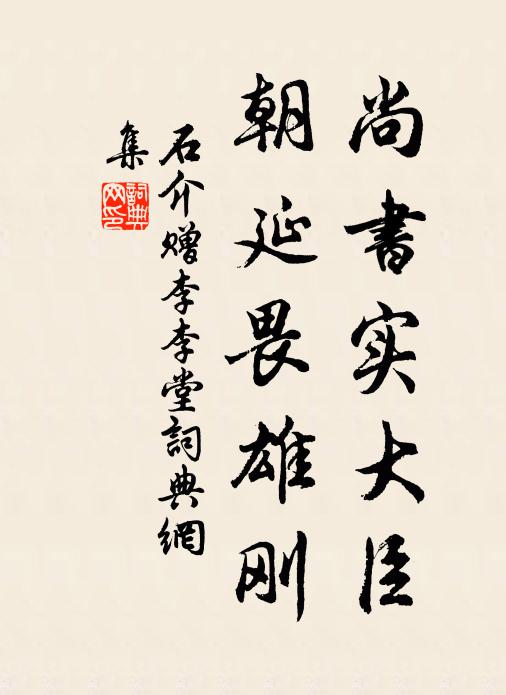 尚書实大臣
朝延畏雄刚
石介赠李李堂詞典網
集
詞典网印